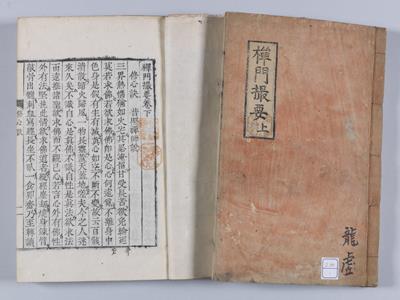 禪門撮要 上
龍虛
禪門撮要卷下
修心訣 普照禪師說
三界熱惱猶如火宅其忍淹留甘受長苦欲免輪廻
莫若求佛若欲求佛佛即是心心何遠覓不離身中
色身是假有生有滅眞心如空不斷不變故云百骸
潰散歸火歸風一物長靈蓋天蓋地嗟夫今之人迷
來久矣不識自心是眞佛不識自性是眞法欲求法
而遠推諸聖欲求佛而不觀己心若言心外有佛性
外有法堅執此情欲求佛道者縱經塵劫燒身煉臂
敲骨出髓刺血寫經長坐不臥一食卯齋乃至轉讀
修心訣